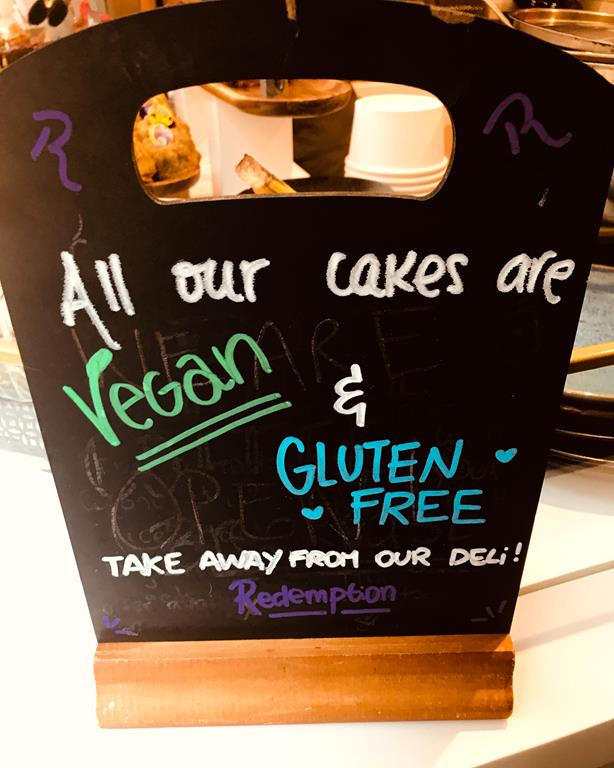 R R
All our cakes are
Vegan &
GLUTEN
FREE
TAKE AWAY FROM OUR DELi!
Redemption